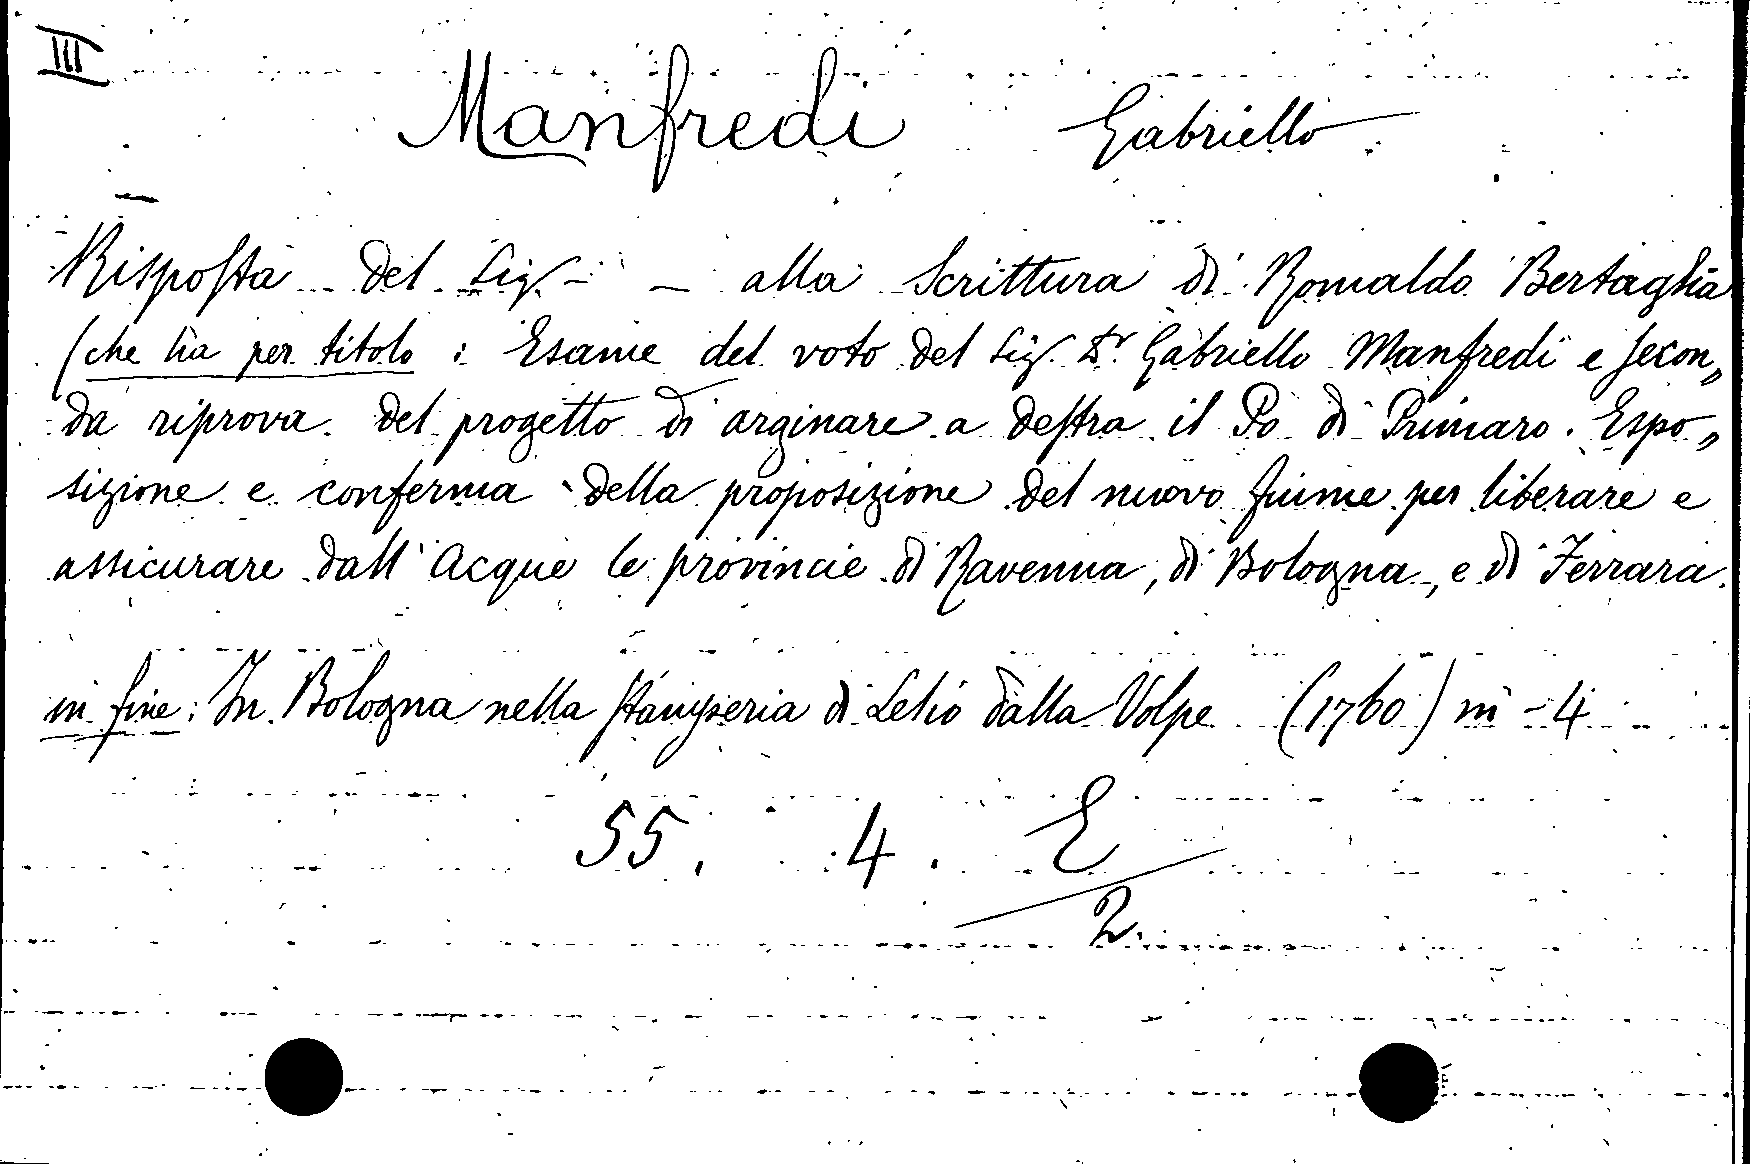 III
Manfredi Gabriello
Risposta del Sig. – – alla Scrittura di Romaldo Bertaglia
(che ha per titolo : Esame del voto del Sig. Dr. Gabriello Manfredi e secon„
da riprova del progetto di arginare a destra il Po di Primaro. Espo„
sizione e conferma della proposizione del nuovo fiume per liberare e
assicurare dall' Acque le provincie di Ravenna, di Bologna, e di Ferrara.
in fine: In Bologna nella stamperia di Lelio dalla Volpe (1760) in - 4
55. 4. E
2.